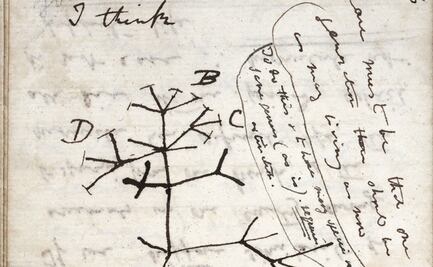 I think
B
C
D
Case must be that one
generation then should be
as many living as now
To do this & to have many species in
same genus (as is). requires
extinction.